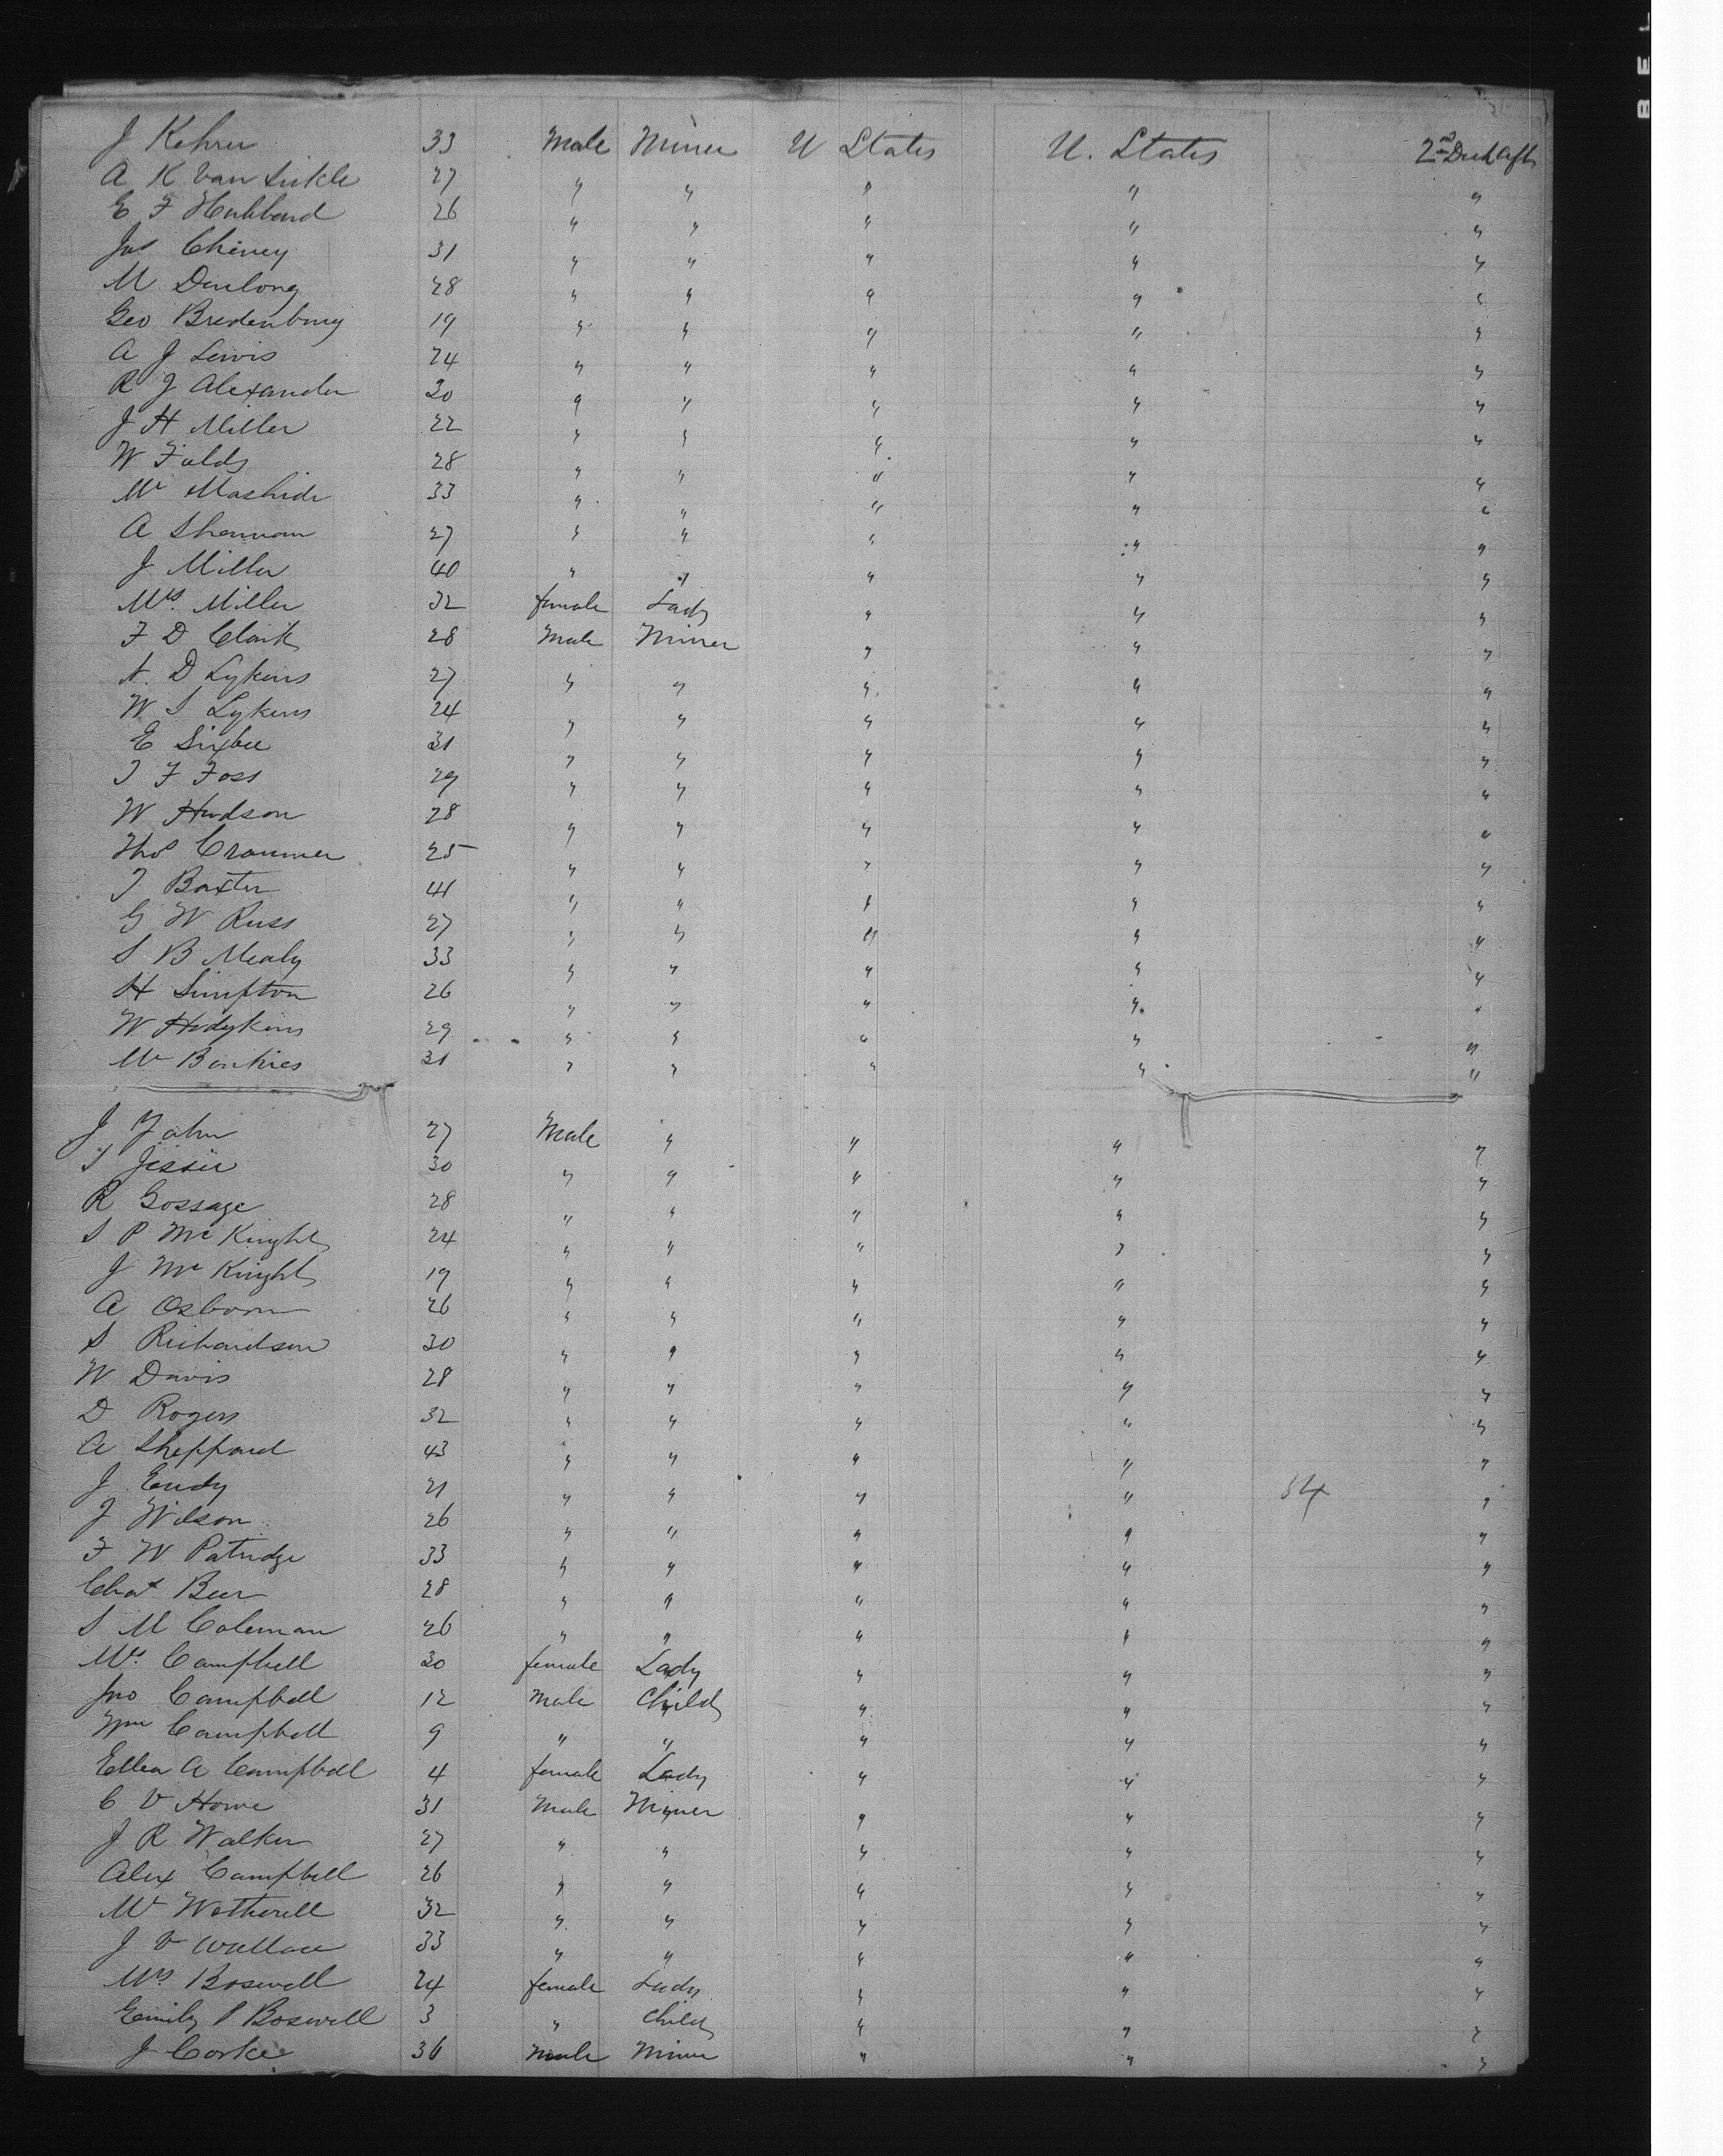 J Kehrer 33 Male Miner U States U. States 2nd Deck Aft
A K Van Sickle 27 " " " " "
E F Hubbard 26 " " " " "
Jas Cheney 31 " " " " "
M Durlong 28 " " " " "
Geo Bredenburg 19 " " " " "
A J Lewis 24 " " " " "
R J Alexander 30 " " " " "
J H Miller 22 " " " " "
W Fields 28 " " " " "
Mr 33 " " " " "
A Shannon 27 " " " " "
J Miller 40 " " " " "
Mrs. Miller 32 female Lady " " "
F D Clark 28 Male Miner " " "
N. D Lykins 27 " " " " "
W S Lykins 24 " " " " "
E Sixbee 31 " " " " "
T F Foss 29 " " " " "
W Hudson 28 " " " " "
Thos Cranmer 25 " " " " "
T Baxter 41 " " " " "
G W Russ 27 " " " " "
S B Mealy 33 " " " " "
H Simpton 26 " " " " "
W Hodgkins 29 " " " " "
Mr Bankies 31 " " " " "
J Jahn 27 Male " " " "
S Jessie 30 " " " " "
R Gossage 28 " " " " "
S P McKnight 24 " " " " "
J McKnight 19 " " " " "
A Osborn 26 " " " " "
S Richardson 30 " " " " "
W Davis 28 " " " " "
D Rogers 32 " " " " "
A Sheppard 43 " " " " "
J Eudy 21 " " " " 34 "
J Wilson 26 " " " " "
F W Patridge 33 " " " " "
Chas Beer 28 " " " " "
S M Coleman 26 " " " " "
Mrs. Campbell 30 female Lady " " "
Jno Campbell 12 Male Child " " "
Wm Campbell 9 " " " " "
Ellen A Campbell 4 female Lady " " "
C V Howe 31 Male Miner " " "
J R Walker 27 " " " " "
Alex Campbell 26 " " " " "
Mr Wetherell 32 " " " " "
J V Wallace 33 " " " " "
Mrs Boswell 24 female Lady " " "
Emily P Boswell 3 " Child " " "
J Corke 36 Male Miner " " "